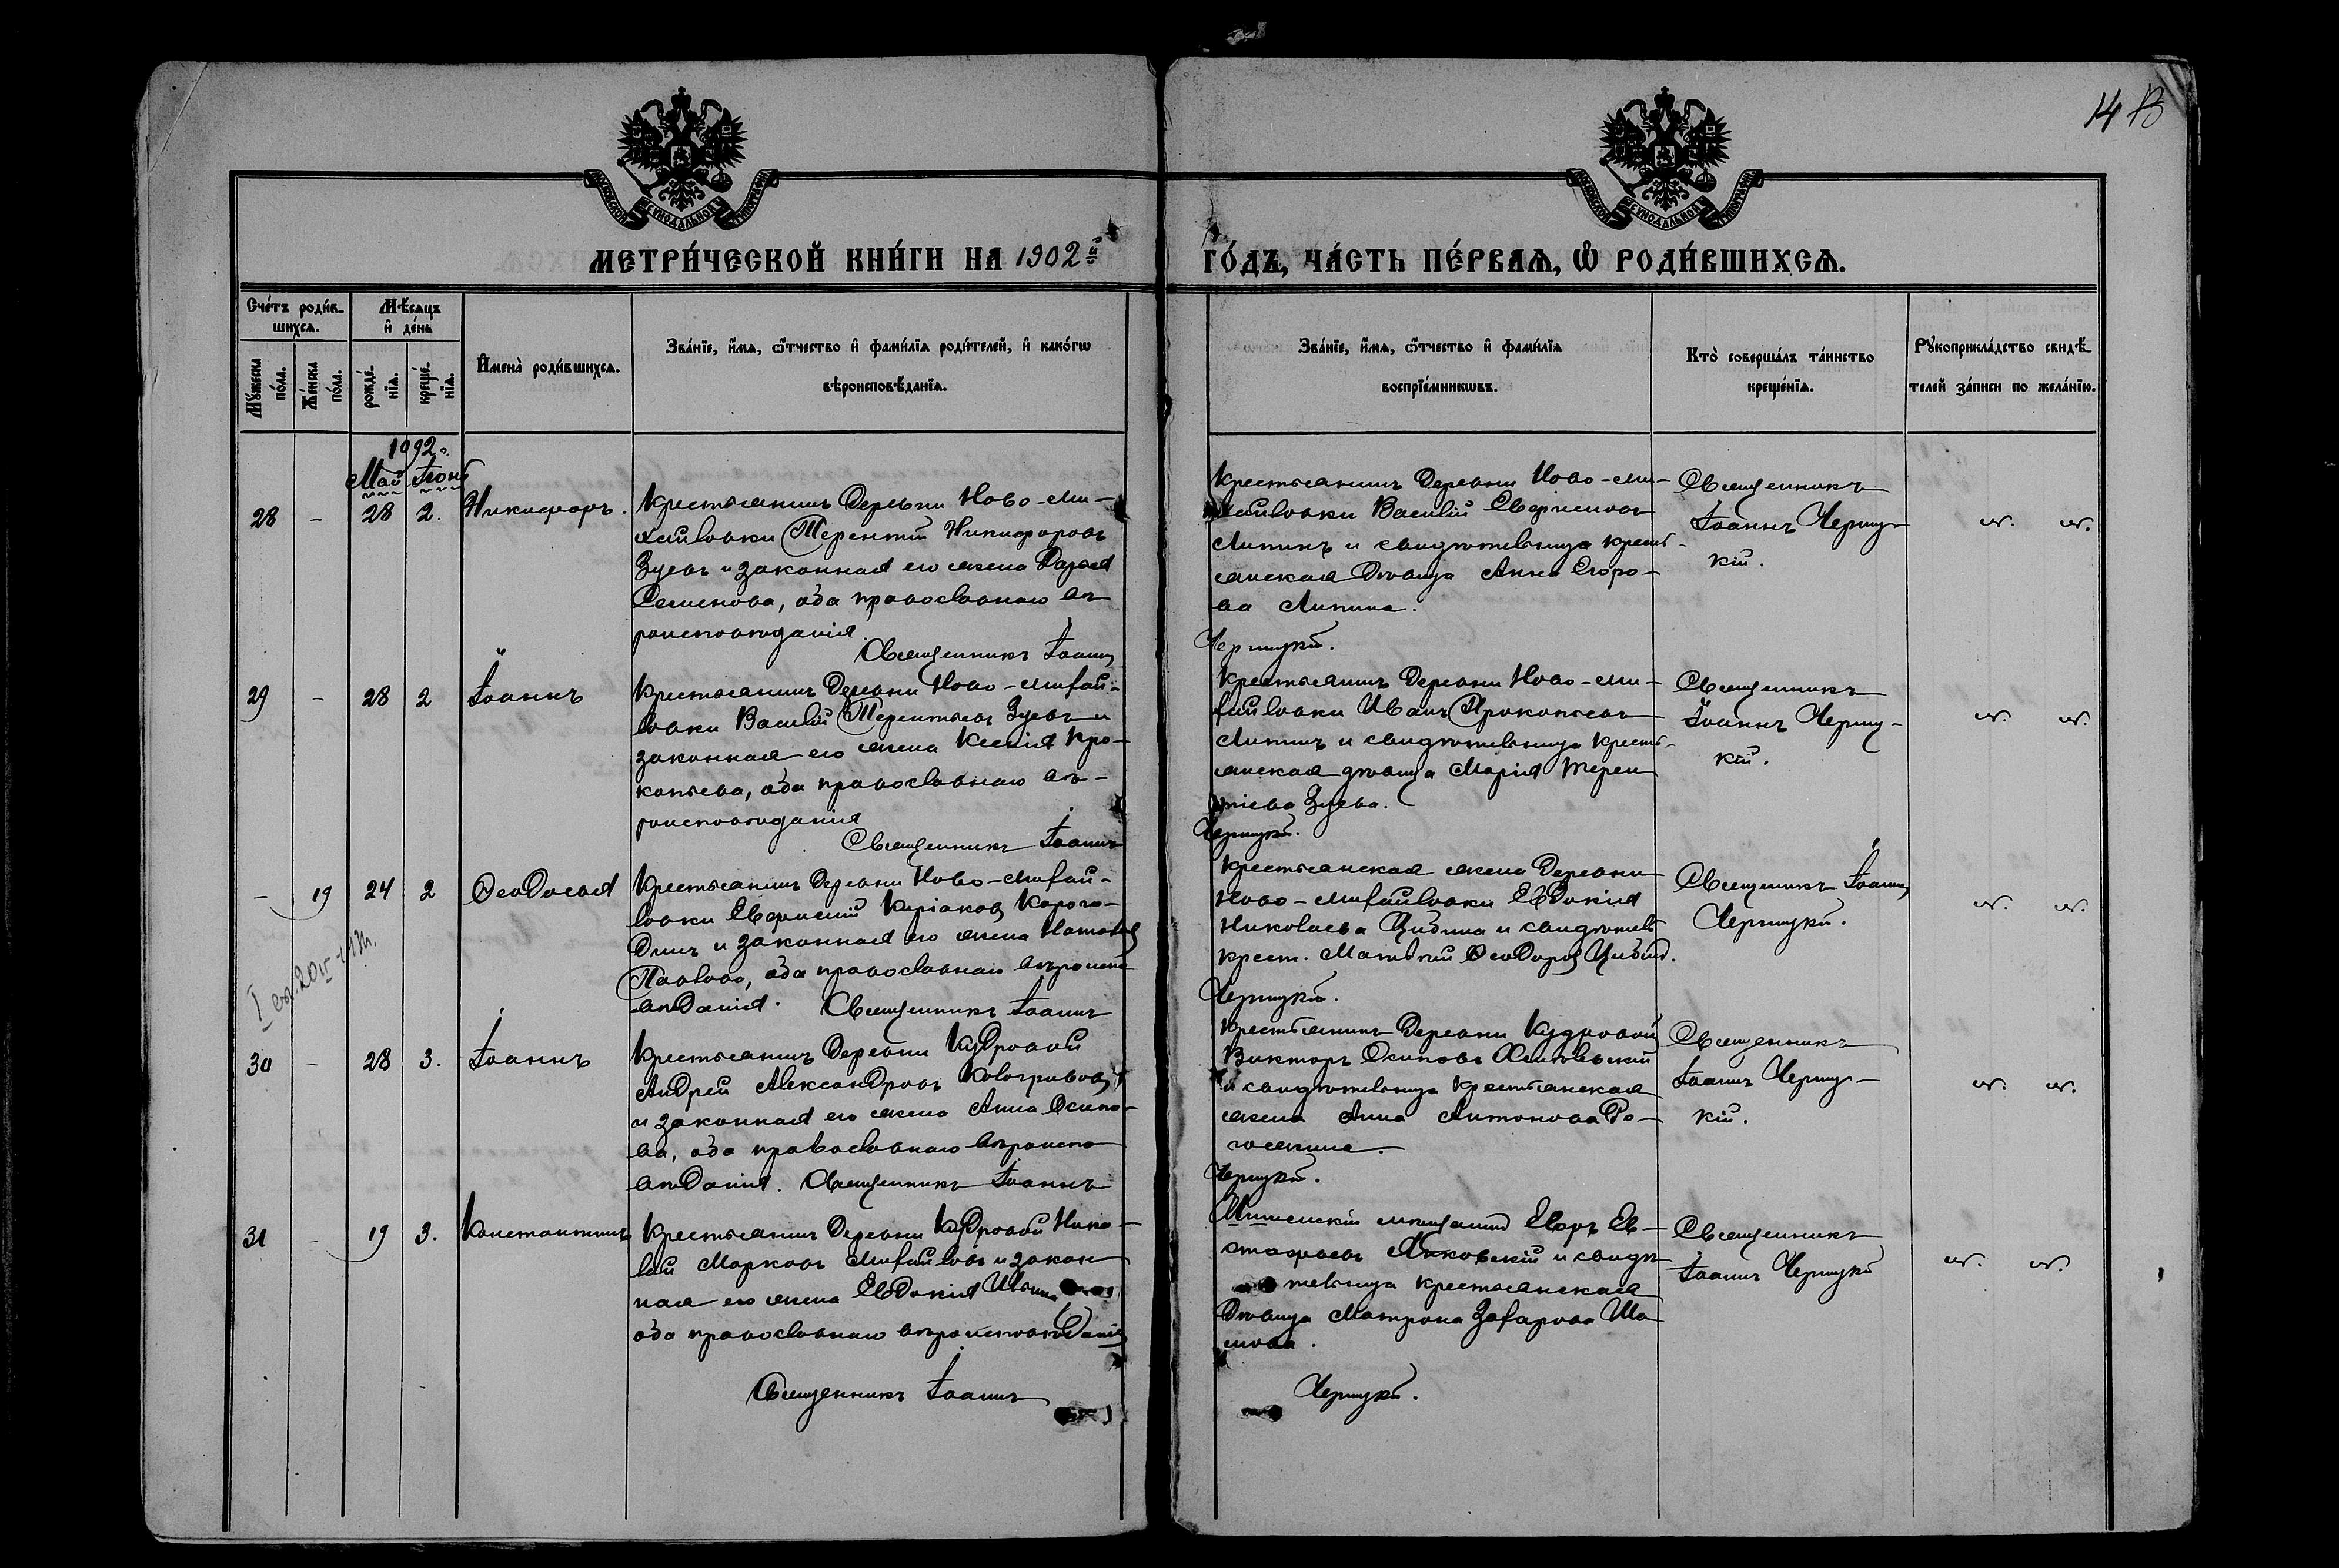 14 13
МЕТРИ́ЧЕСКОЙ КНИ́ГИ НА 1902й
ГО́ДЪ, ЧА́СТЬ ПЕ́РВАѦ, Ѡ҆ РОДИ́ВШИХСѦ.
Сче́тъ роди́в-
шихсѧ.
Мѣ́сѧцъ
и҆ де́нь
Мꙋ́жеска
по́ла.
Же́нска
по́ла.
рожде́-
нїѧ.
креще́-
нїѧ.
И҆мена̀ роди́вшихсѧ.
Зва́нїе, и҆́мѧ, ѻ҆́тчество и҆ фами́лїѧ роди́телей, и҆ како́гѡ
вѣроисповѣ́данїѧ.
Зва́нїе, и҆́мѧ, ѻ҆́тчество и҆ фами́лїѧ
воспрїе́мникѡвъ.
Кто̀ соверша́лъ та́инство
креще́нїѧ.
Рꙋкоприкла́дство свидѣ́-
телей за́писи по жела́нїю.
Май Іюнь
28 - 28 2. Никифоръ.
Крестьянинъ деревни Ново-Ми-
хайловки Терентій Никифоровъ
Зуевъ и законная его жена Дарія
Семенова, оба православнаго вѣ-
роисповѣданія.
Священникъ Іоаннъ
Крестьянинъ деревни Ново-Ми-
хайловки Василій
Липинъ и свидѣтельница кресть-
янская дѣвица Анна Егоро-
ва Липина.
Черницкій.
Священникъ
Іоаннъ Черниц-
кій.
29 - 28 2 Іоаннъ
Крестьянинъ деревни Ново-Михай-
ловки Василій Терентьевъ Зуевъ и
законная его жена Ксенія Про-
копьева, оба православнаго вѣ-
роисповѣданія
Священникъ Іоаннъ
Крестьянинъ деревни Ново-Ми-
хайловки Иванъ Прокопьевъ
Липинъ и свидѣтельница кресть-
янская дѣвица Марія Терен
тіева Зуева.
Черницкій.
Священникъ
Іоаннъ Черниц-
кій.
- 19 24 2 Ѳеодосія
Крестьянинъ деревни Ново-Михай-
ловки Евфимій Киріаковъ Корого-
динъ и законная его жена Наталія
Павлова, оба православнаго вѣроиспо
вѣданія. Священникъ Іоаннъ
Крестьянская жена деревни
Ново-Михайловки Евдокія
Николаева и свидѣтель
крест. Матвѣй Ѳеодоровъ
Черницкій.
Священникъ Іоаннъ
Черницкій.
30 - 28 3. Іоаннъ
Крестьянинъ деревни Кудровой
Андрей Александровъ Кологривовъ
и законная его жена Анна Осипо-
ва, оба православнаго вѣроиспо
вѣданія. Священникъ Іоаннъ
Крестьянинъ деревни Кудровой
Викторъ Осиповъ
и свидѣтельница крестьянская
жена Анна Антонова Ро-
гожкина.
Черницкій.
Священникъ
Іоаннъ Черниц-
кій.
31 - 19 3. Константинъ
Крестьянинъ деревни Кудровой Нико-
лай Марковъ Михайловъ и закон
ная его жена Евдокія Ильина
оба православнаго вѣроисповѣданія
Священникъ Іоаннъ
мѣщанинъ Егоръ Ев-
стафьевъ и свидѣ-
тельница крестьянская
дѣвица Матрона Захарова
Черницкій.
Священникъ
Іоаннъ Черницкій